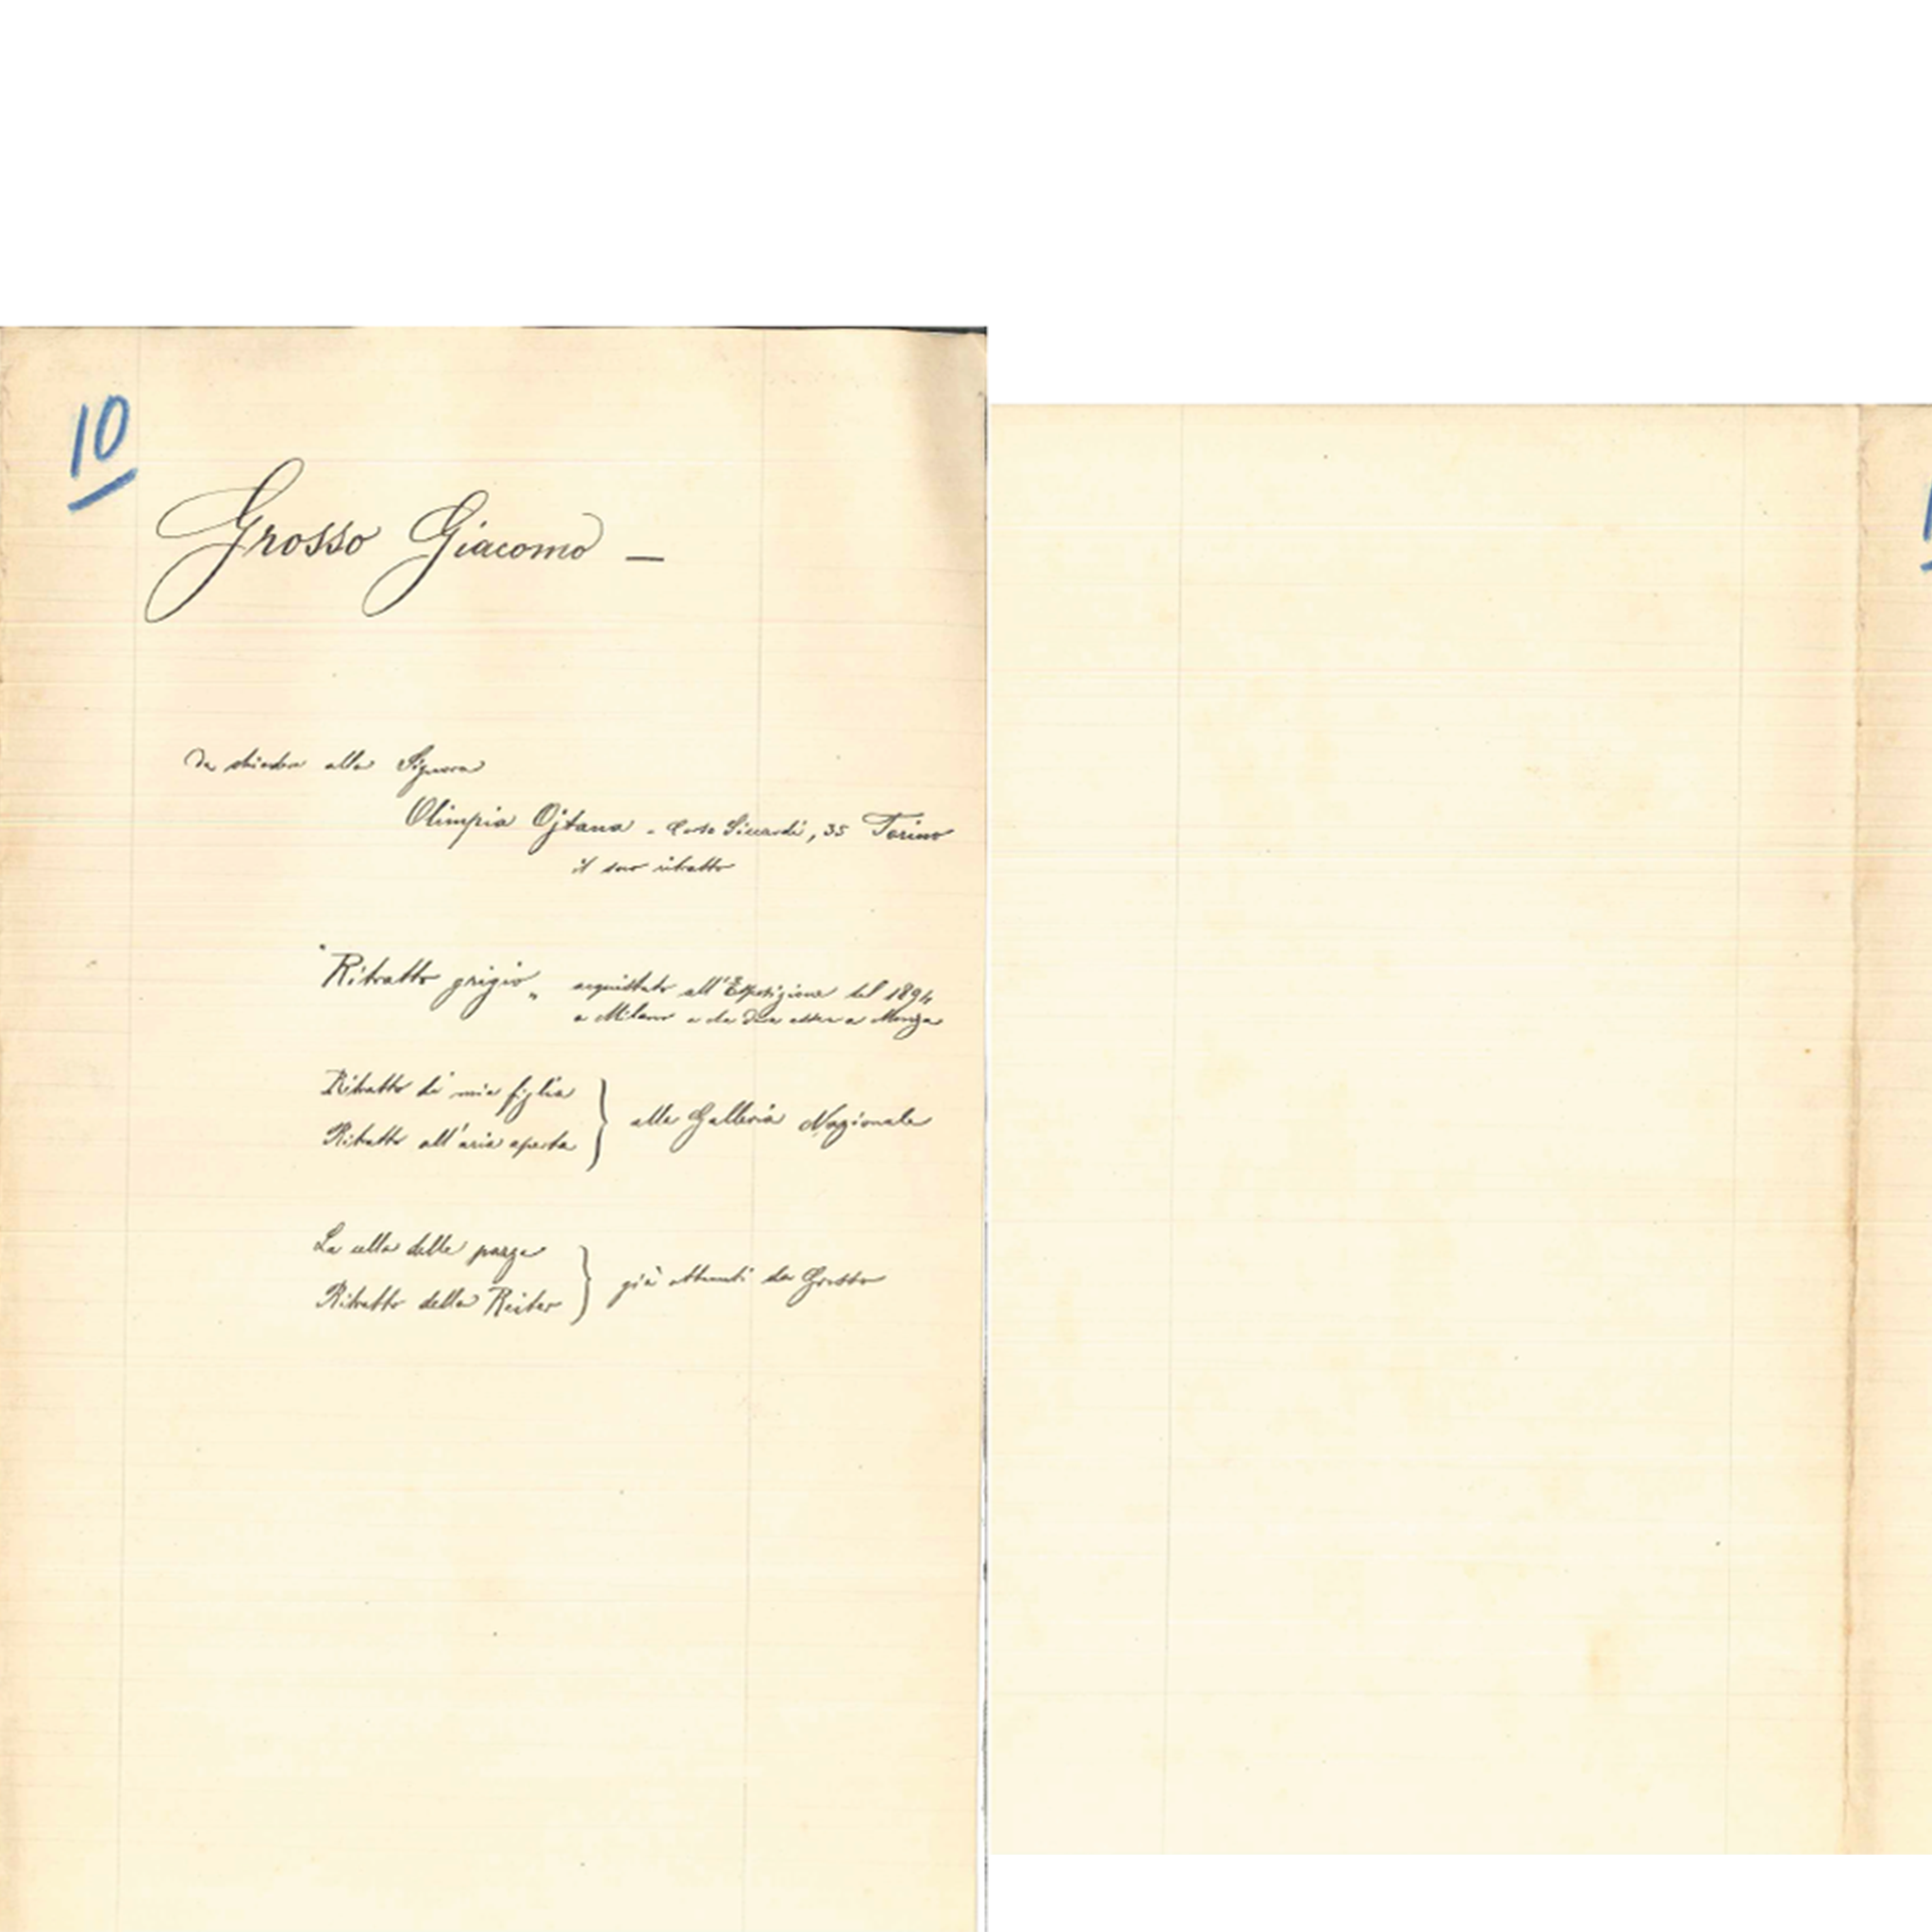 10
Grosso Giacomo —
Da chiedere alla Signora
Olimpia Ojtana - Corso Siccardi, 35 Torino
il suo ritratto
"Ritratto grigio„ acquistato all'Esposizione del 1894
a Milano e che deve essere a Monza
Ritratto di mia figlia
Ritratto all'aria aperta
} alla Galleria Nazionale
La cella delle pazze
Ritratto della Reiter
} già ottenuti da Grosso